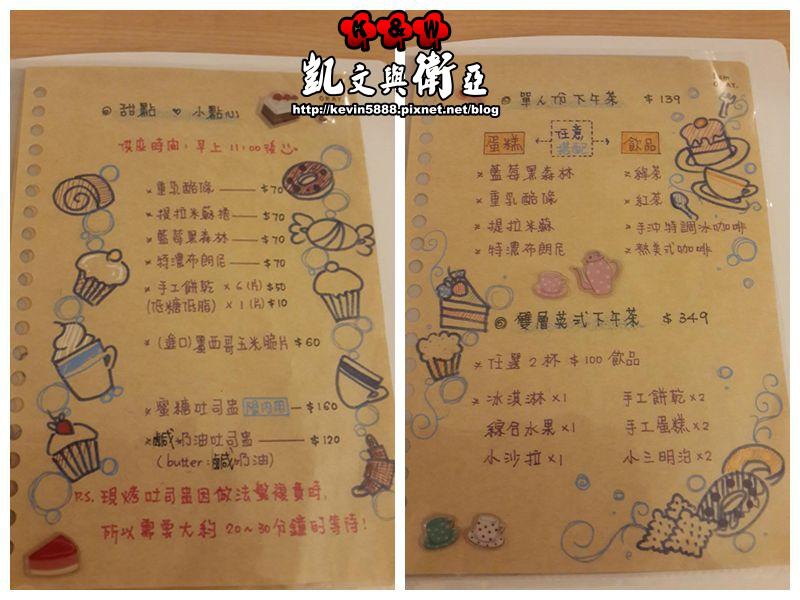 K & W
凱文與衛亞
http://kevin5888.pixnet.net/blog
甜點 ♥ 小點心
供應時間:早上 11:00後
× 重乳酪條 —— $70
× 提拉米蘇捲 —— $70
× 藍莓黑森林 —— $70
× 特濃布朗尼 —— $70
× 手工餅乾 × 6 (片) $50
(低糖低脂) × 1 (片) $10
× (進口)墨西哥玉米脆片 $60
× 蜜糖吐司盅 限內用 — $160
× 鹹奶油吐司盅 —— $120
(butter:鹹奶油)
P.S. 現烤吐司盅因做法繁複費時,
所以需要大約 20~30分鐘的等待!
單人份下午茶 $139
蛋糕 任意搭配 飲品
× 藍莓黑森林 × 綠茶
× 重乳酪條 × 紅茶
× 提拉米蘇 × 手沖特調冰咖啡
× 特濃布朗尼 × 熱美式咖啡
雙層英式下午茶 $349
× 任選2杯 $100 飲品
× 冰淇淋×1 手工餅乾×2
綜合水果×1 手工蛋糕×2
小沙拉×1 小三明治×2